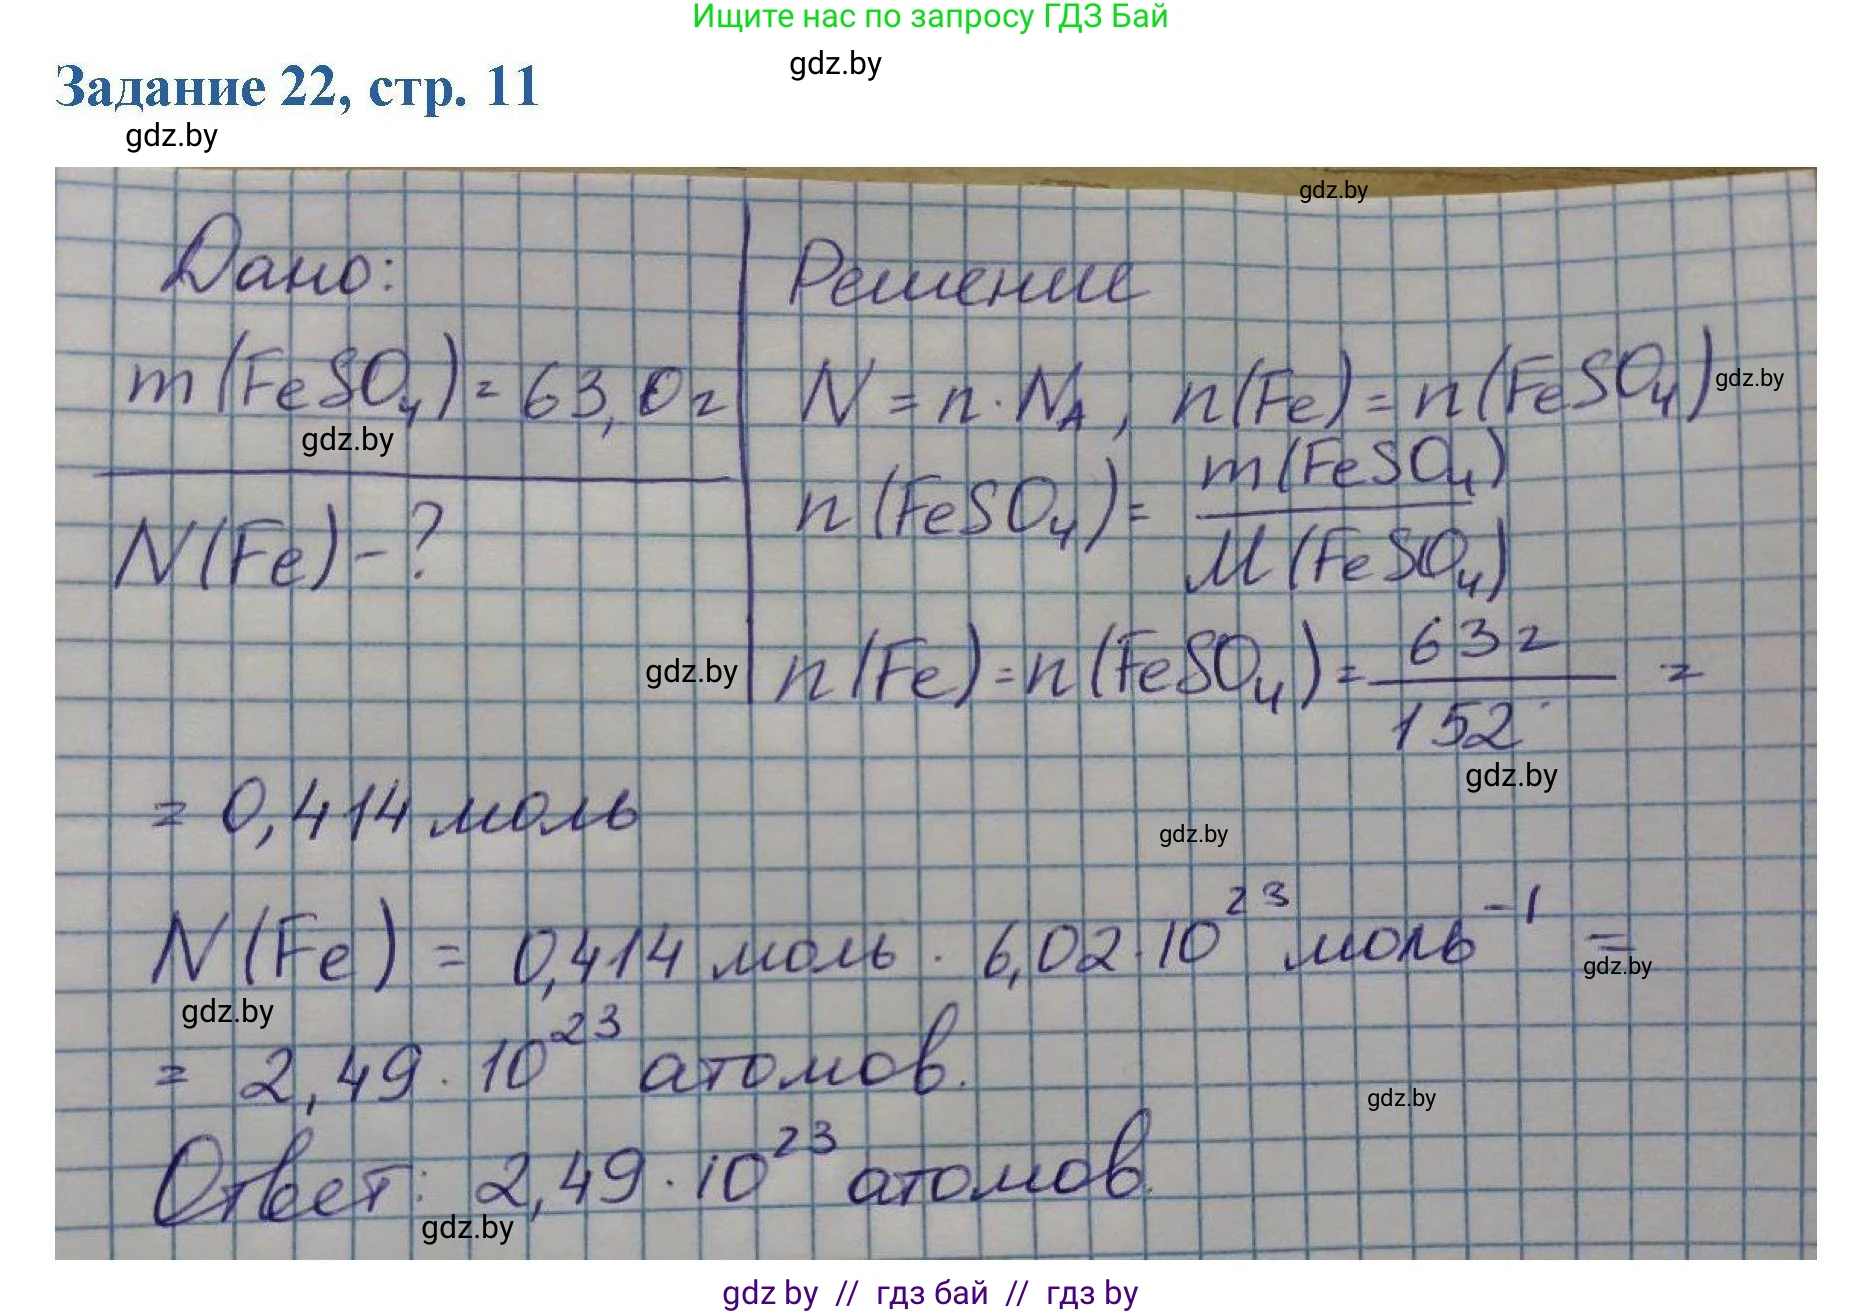 Ищите нас по запросу ГДЗ Бай
gdz.by
Задание 22, стр. 11
gdz.by
gdz.by
Дано:
Решение
m(FeSO₄) = 63,0 г
N = n · Nᴀ ; n(Fe) = n(FeSO₄)
gdz.by
gdz.by
n(FeSO₄) = m(FeSO₄) / M(FeSO₄)
N(Fe) - ?
gdz.by
n(Fe) = n(FeSO₄) = 63 г / 152 =
gdz.by
= 0,414 моль
gdz.by
N(Fe) = 0,414 моль · 6,02 · 10²³ моль⁻¹ =
gdz.by
gdz.by
= 2,49 · 10²³ атомов.
gdz.by
Ответ: 2,49 · 10²³ атомов.
gdz.by
gdz by // гдз бай // гдз by